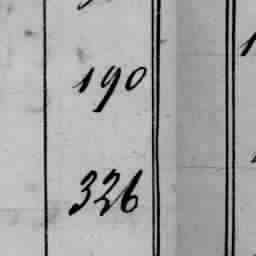 190
326